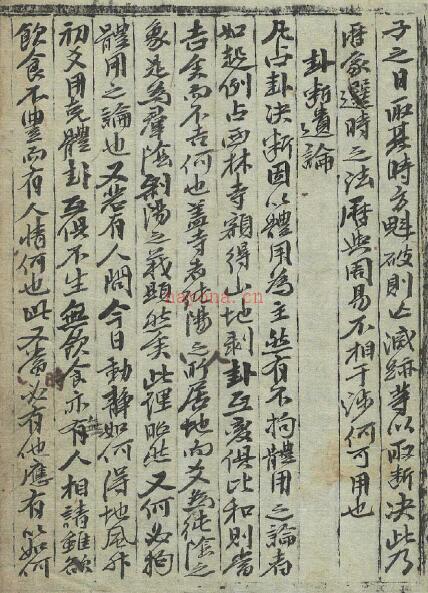 子之日取其時方魁破則亡滅跡等以取斷决此乃
曆象選時之法曆與周易不相干涉何可用也
卦斷遺論
凡占卦决斷固以體用為主然有不拘體用之論者
如起例占西林寺額得山地剥卦互变俱比和則當
吉矣而不吉何也盖寺者純陽之人所居地而爻為純陰之
象是為羣陰剥陽之義顯然矣此理昭然又何必拘
體用之論也又若有人問今日動静如何得地風升
初爻用克體卦互俱不生無飲食亦有人相請雖飲
飲食不豐而有人情何也此又當時必有他應有以如何
hayona.cn